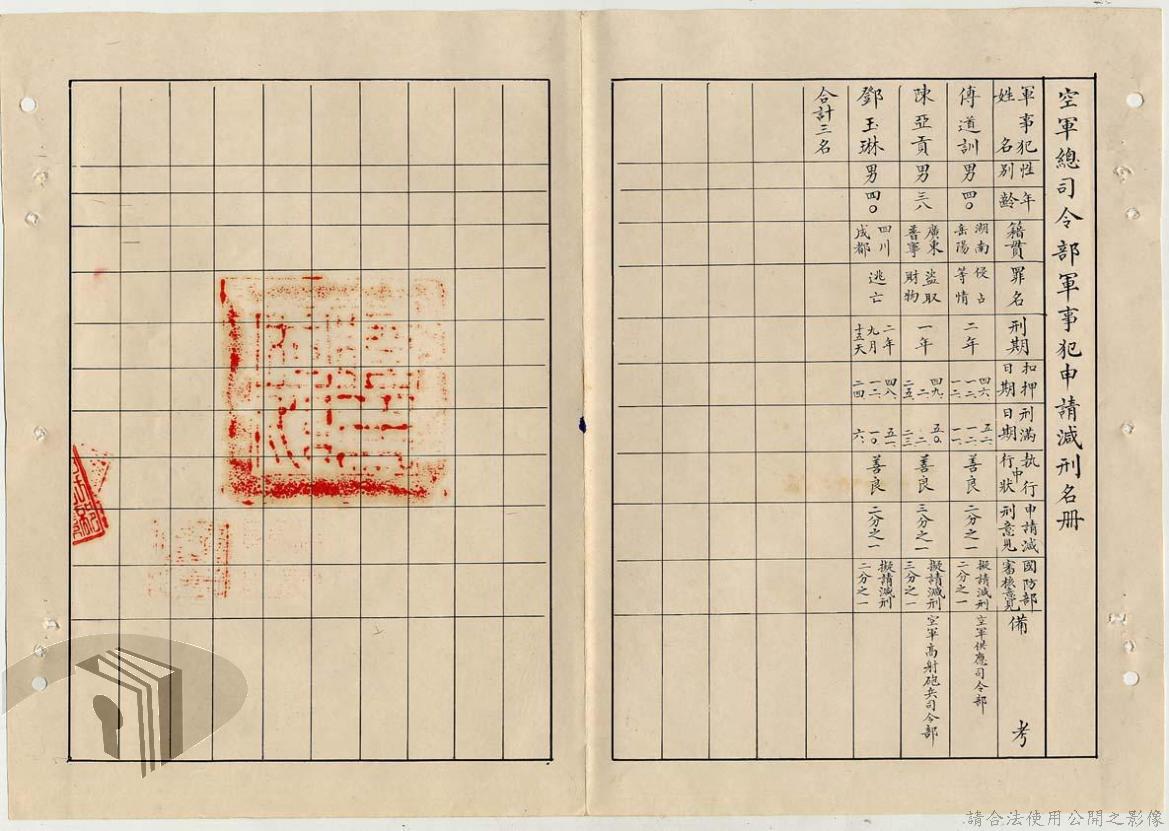 空軍總司令部軍事犯申請減刑名冊
軍事犯姓名
性別
年齡
籍貫
罪名
刑期
扣押日期
刑滿日期
執行中行狀
申請減刑意見
國防部審核意見
備考
傅道訓
男
四〇
湖南岳陽
侵占等情
二年
四六、一二、一二、
五二、一二、一一、
善良
二分之一
擬請減刑二分之一
空軍供應司令部
陳亞貢
男
三八
廣東普寧
盜取財物
一年
四九、二、二五、
五〇、二、二三、
善良
三分之一
擬請減刑三分之一
空軍高射砲兵司令部
鄧玉琳
男
四〇
四川成都
逃亡
二年九月十五天
四八、一二、二四、
五一、一〇、六、
善良
二分之一
擬請減刑二分之一
合計三名
請合法使用公開之影像